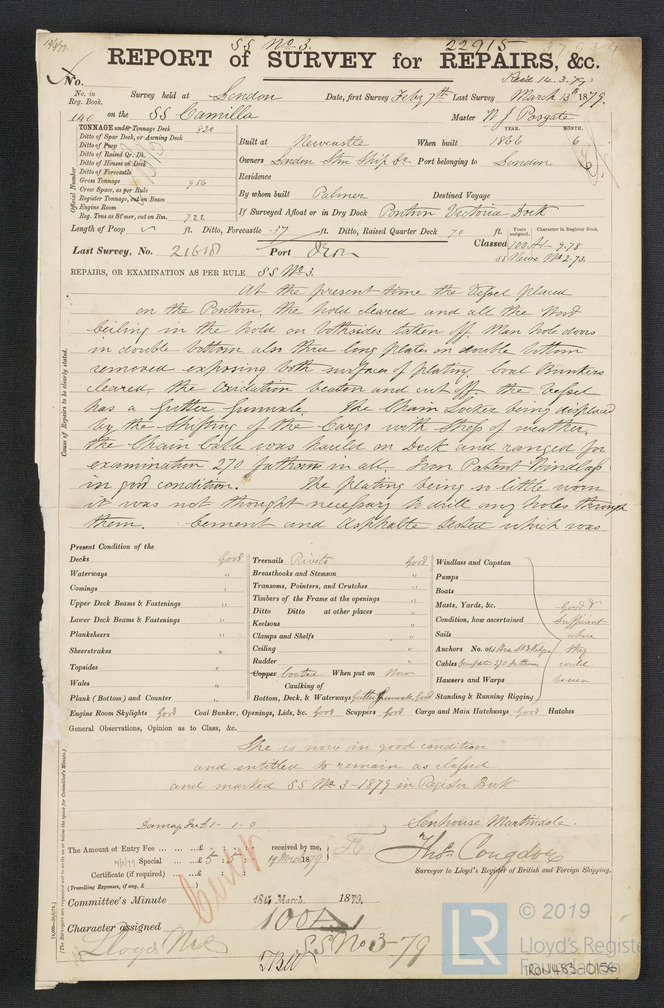 SS No. 3. 22915
REPORT of SURVEY for REPAIRS, &c.
No. Paid 14.3.79
No. in Reg. Book. Survey held at London Date, first Survey Feby 7th Last Survey March 13th 1879.
140 on the SS Camilla Master W J Posgate
TONNAGE under Tonnage Deck 820
Ditto of Spar Deck, or Awning Deck
Ditto of Poop
Ditto of Raised Qr. Dk.
Ditto of Houses on Deck
Ditto of Forecastle
Gross Tonnage 956
Crew Space, as per Rule
Register Tonnage, cut on Beam
Engine Room
Reg. Tons as St'mer, cut on Bm. 722
Official Number
YEAR. MONTH.
Built at Newcastle When built 1866 6
Owners London Stm Ship Co Port belonging to London
Residence
By whom built Palmer Destined Voyage
If Surveyed Afloat or in Dry Dock Pontoon Victoria Dock
Length of Poop ft. Ditto, Forecastle 37 ft. Ditto, Raised Quarter Deck 70 ft.
Years assigned. Character in Register Book.
Last Survey, No. 21618 Port Iron Classed 100 A1 9.78
SS No 2-73
REPAIRS, OR EXAMINATION AS PER RULE SS No 3.
At the present time the Vessel placed
on the Pontoon, the hold cleared and all the Wood
Ceiling in the hold on bothsides taken off. Man hole doors
in double bottom also three long plates on double bottom
removed exposing both surfaces of plating, Coal Bunkers
cleared, the Oxidation beaten and cut off. the Vessel
has a Gutter Gunwale. The Chain Locker being displaced
by the Shifting of the Cargo with Stress of weather,
the Chain Cable was hauled on Deck and ranged for
examination 270 fathoms in all. Iron Patent Windlass
in good condition. The plating being so little worn
it was not thought necessary to drill any holes through
them. Cement and Asphalte tested which was
Cause of Repairs to be clearly stated.
Present Condition of the
Decks Good
Waterways "
Comings "
Upper Deck Beams & Fastenings "
Lower Deck Beams & Fastenings "
Planksheers "
Sheerstrakes "
Topsides "
Wales "
Plank (Bottom) and Counter "
Treenails Rivets Good
Breasthooks and Stemson "
Transoms, Pointers, and Crutches "
Timbers of the Frame at the openings "
Ditto Ditto at other places "
Keelsons "
Clamps and Shelfs "
Ceiling "
Rudder "
Copper Coated When put on Now
Caulking of
Bottom, Deck, & Waterways Gutter Gunwale Good
Windlass and Capstan
Pumps
Boats
Masts, Yards, &c. Good &
Condition, how ascertained Sufficient
Sails where
Anchors No. of they
Cables Complete 270 fathoms could
Hawsers and Warps be seen
Standing & Running Rigging
Engine Room Skylights Good Coal Bunker, Openings, Lids, &c. Good Scuppers Good Cargo and Main Hatchways Good Hatches
General Observations, Opinion as to Class, &c.
She is now in good condition
and entitled to remain as classed
and marked SS No 3-1879 in Register Book
Damage Fee £1-1-0 Senhouse Martindale.
The Amount of Entry Fee ... £ : : received by me,
Special ... £ 5 : 5 : 19 March 1879
Certificate (if required) ... £ : :
(Travelling Expenses, if any, £
Thos. Congdon
Surveyor to Lloyd's Register of British and Foreign Shipping.
Committee's Minute 18th March 1879.
Character assigned 100 A1
Lloyds SS No 3-79
© 2019
LR
Lloyd's Register
Foundation
IRON483-0156